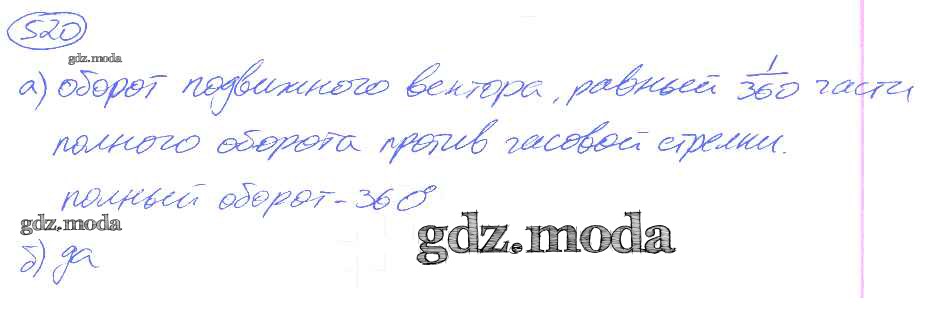 520
gdz.moda
а) оборот подвижного вектора, равный 1/360 части
полного оборота против часовой стрелки.
полный оборот - 360°
gdz.moda
gdz.moda
б) да